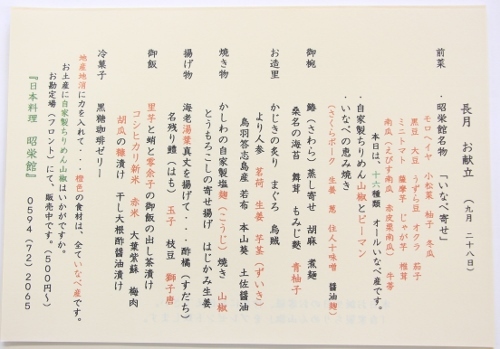 長月　お献立　（九月　二十八日）
前菜　・昭栄館名物　「いなべ寄せ」
モロヘイヤ　小松菜　柚子　冬瓜
黒豆　大豆　うずら豆　オクラ　茄子
ミニトマト　薩摩芋　じゃが芋　椎茸
南瓜（えびす南瓜　赤皮栗南瓜）　牛蒡
本日は、十六種類　オールいなべ産です。
・自家製ちりめん山椒とピーマン
・いなべの恵み焼き
（さくらポーク　生姜　葱　住人十味噌　醤油麹）
御椀　鰆（さわら）　蒸し寄せ　胡麻　煮麺
桑名の海苔　舞茸　もみじ麩　青柚子
お造里　かじきの炙り　まぐろ　烏賊
より人参　茗荷　生姜　芋茎（ずいき）
鳥羽答志島産　若布　本山葵　土佐醤油
焼き物　かしわの自家製塩麹（こうじ）焼き　山椒
とうもろこしの寄せ揚げ　はじかみ生姜
揚げ物　海老湯葉真丈を揚げて・・・酢橘（すだち）
名残り鱧（はも）　玉子　枝豆　獅子唐
御飯　里芋と蛸と零余子の御飯の出し茶漬け
コシヒカリ新米　赤米　大葉紫蘇　梅肉
胡瓜の糠漬け　干し大根酢醤油漬け
冷菓子　黒糖珈琲ゼリー
地産地消に力を入れて・・・橙色の食材は、全ていなべ産です。
お土産に自家製ちりめん山椒はいかがですか。
お勘定場（フロント）にて、販売中です。（５００円〜）
『日本料理　昭栄館』　０５９４（７２）２０６５